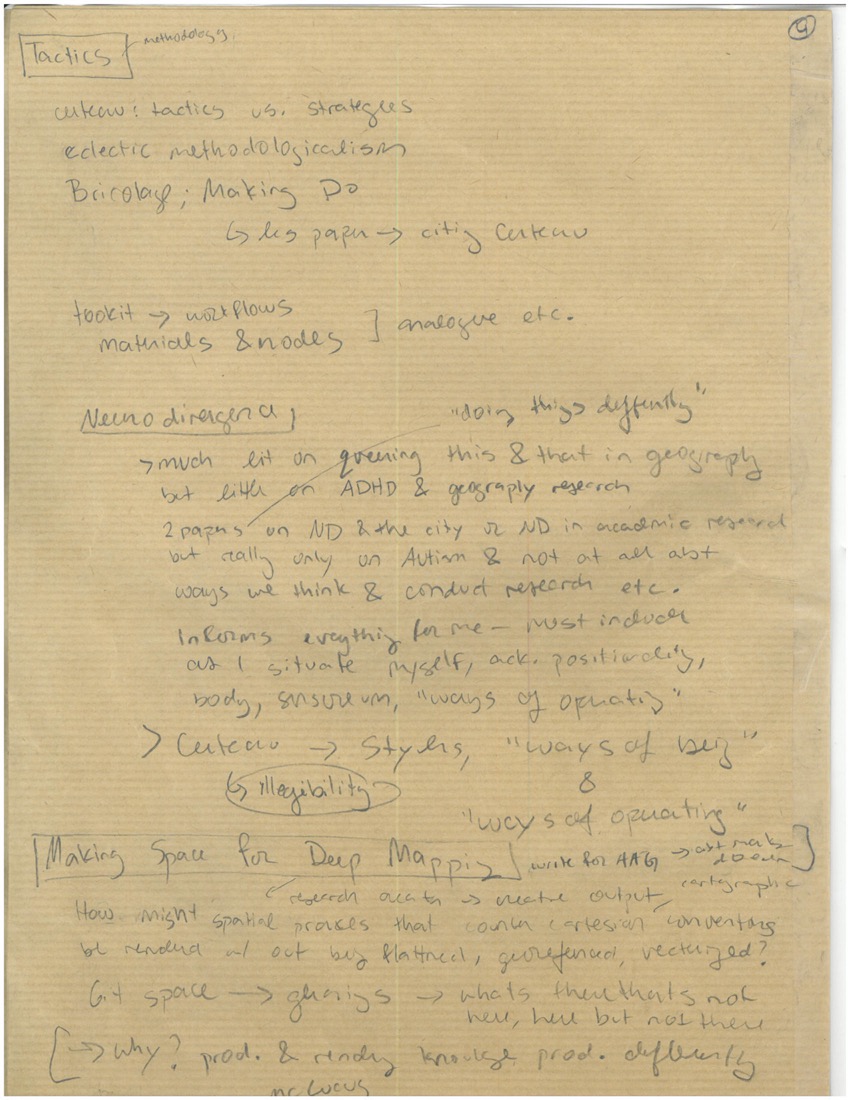 9
Tactics methodology.
Certeau: tactics vs. strategies
eclectic methodologicalism
Bricolage; Making Do
↳ les paper → citing Certeau
toolkit → workflows
materials & nodes ] analogue etc.
Neurodivergence
"doing things differently"
> much lit on queering this & that in geography
but little on ADHD & geography research
2 papers on ND & the city or ND in academic research
but really only on Autism & not at all abt
ways we think & conduct research etc.
Informs everything for me – must include
as I situate myself, ack. positionality,
body, sensorium, "ways of operating"
> Certeau → Styles, "ways of being"
↳ illegibility
&
"ways of operating"
Making Space for Deep Mapping write for AAG →
research → creative output, cartographic
How might spatial praxises that counter cartesian conventions
be rendered w/out being flattened, georeferenced, vectorized?
Git space → → whats there thats not
here, here but not there
[→ why? prod. & rendering knowledge prod. differently